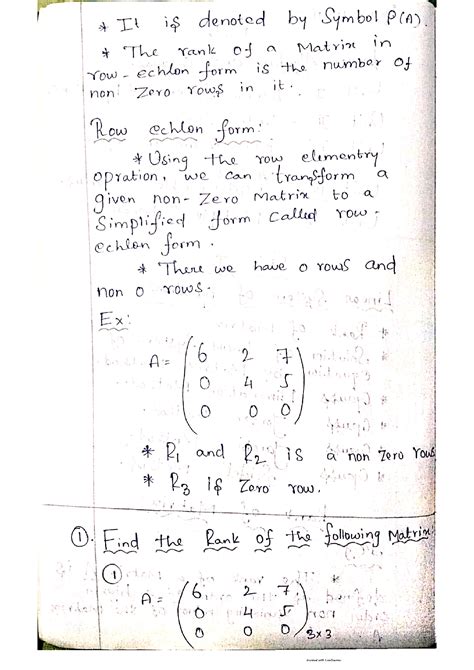 * It is denoted by Symbol P(A).
* The rank of a Matrix in
row-echlon form is the number of
non Zero rows in it.
Row echlon form:
* Using the row elementry
opration, we can transform a
given non-Zero Matrix to a
Simplified form called row-
echlon form.
* There we have 0 rows and
non 0 rows.
Ex:
A = ( 6 2 7
0 4 5
0 0 0 )
* R1 and R2 is a non zero rows
* R3 is Zero row.
①. Find the Rank of the following Matrix:
①
A = ( 6 2 7
0 4 5
0 0 0 ) 3×3